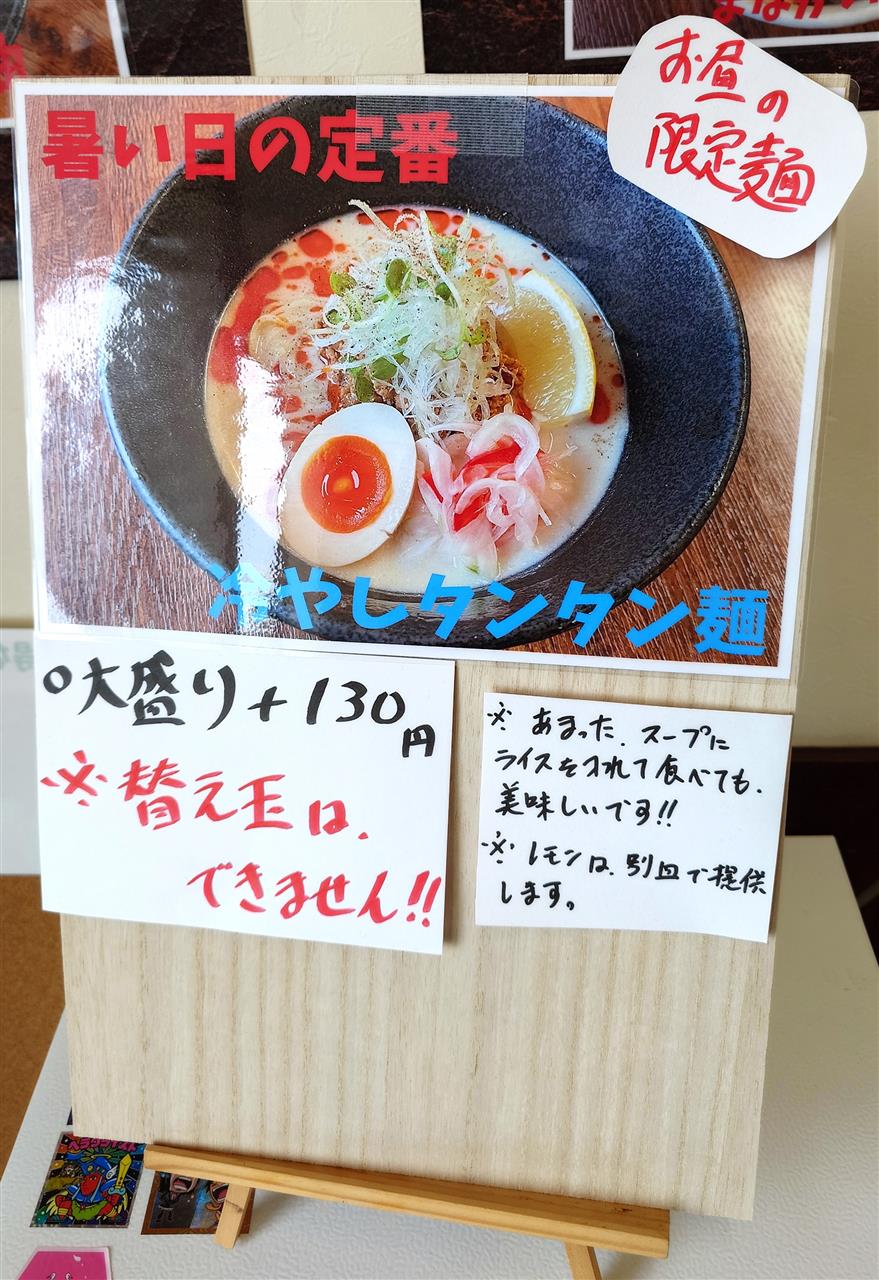 お昼の
限定麺
暑い日の定番
冷やしタンタン麺
○大盛り+130円
※替え玉は、
できません!!
※あまった、スープに
ライスを入れて食べても、
美味しいです!!
※レモンは、別皿で提供
します。